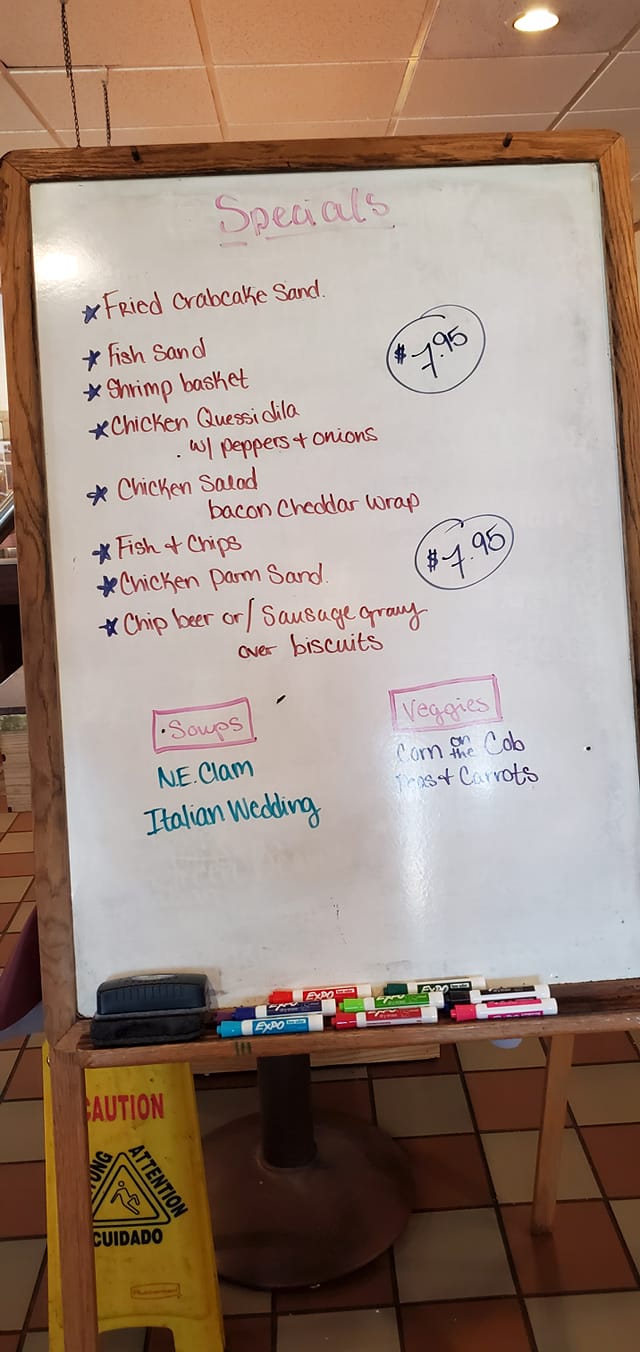 Specials
Fried Crabcake Sand.
Fish Sand
$7.95
Shrimp basket
Chicken Quessidila
w/ peppers + onions
Chicken Salad
bacon Cheddar Wrap
Fish + Chips
$7.95
Chicken Parm Sand.
Chip beer or/ Sausage gravy
over biscuits
Soups
Veggies
N.E. Clam
Corn on the Cob
Italian Wedding
Peas + Carrots
EXPO
EXPO
EXPO
CAUTION
ATTENTION
CUIDADO
Rubbermaid